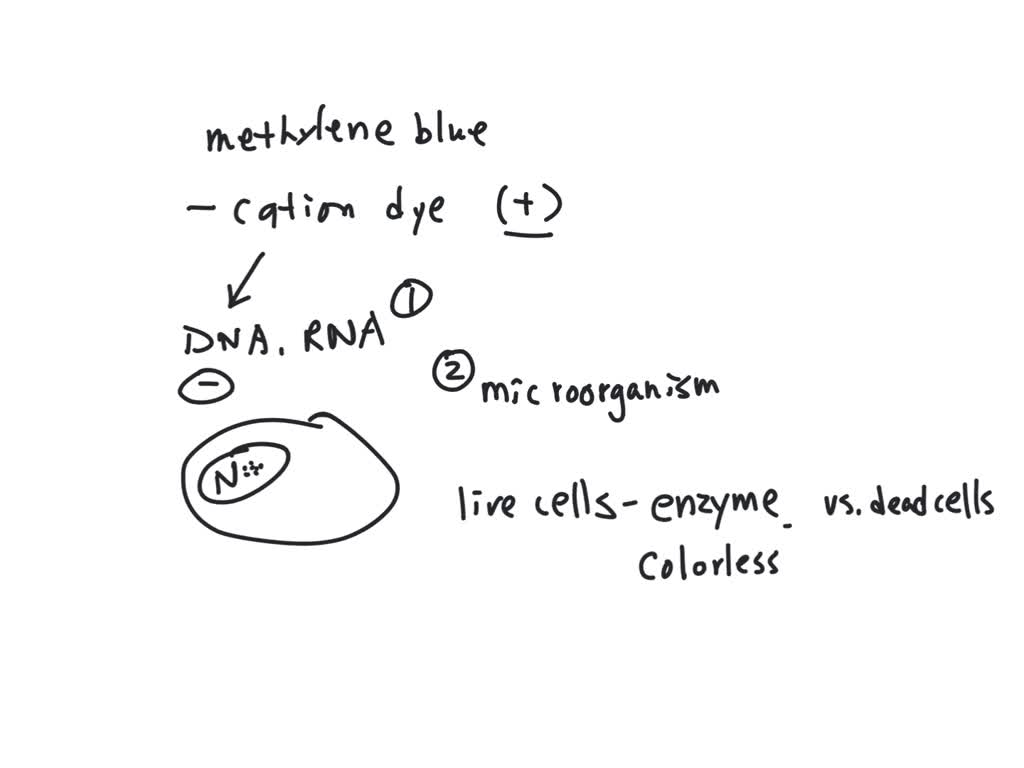 methylene blue
- cation dye (+)
DNA. RNA ①
⊖
② microorganism
N
live cells - enzyme. vs. dead cells
colorless